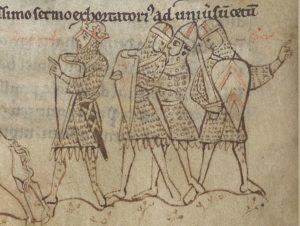 ssimo sermo exhortatori᷒ ad uniu᷒sū cetū